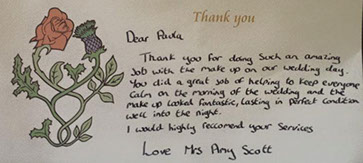 Thank you
Dear Paula
Thank you for doing such an amazing
job with the make up on our wedding day.
You did a great job of helping to keep everyone
calm on the morning of the wedding and the
make up looked fantastic, lasting in perfect condition
well into the night.
I would highly reccomend your services
Love Mrs Amy Scott